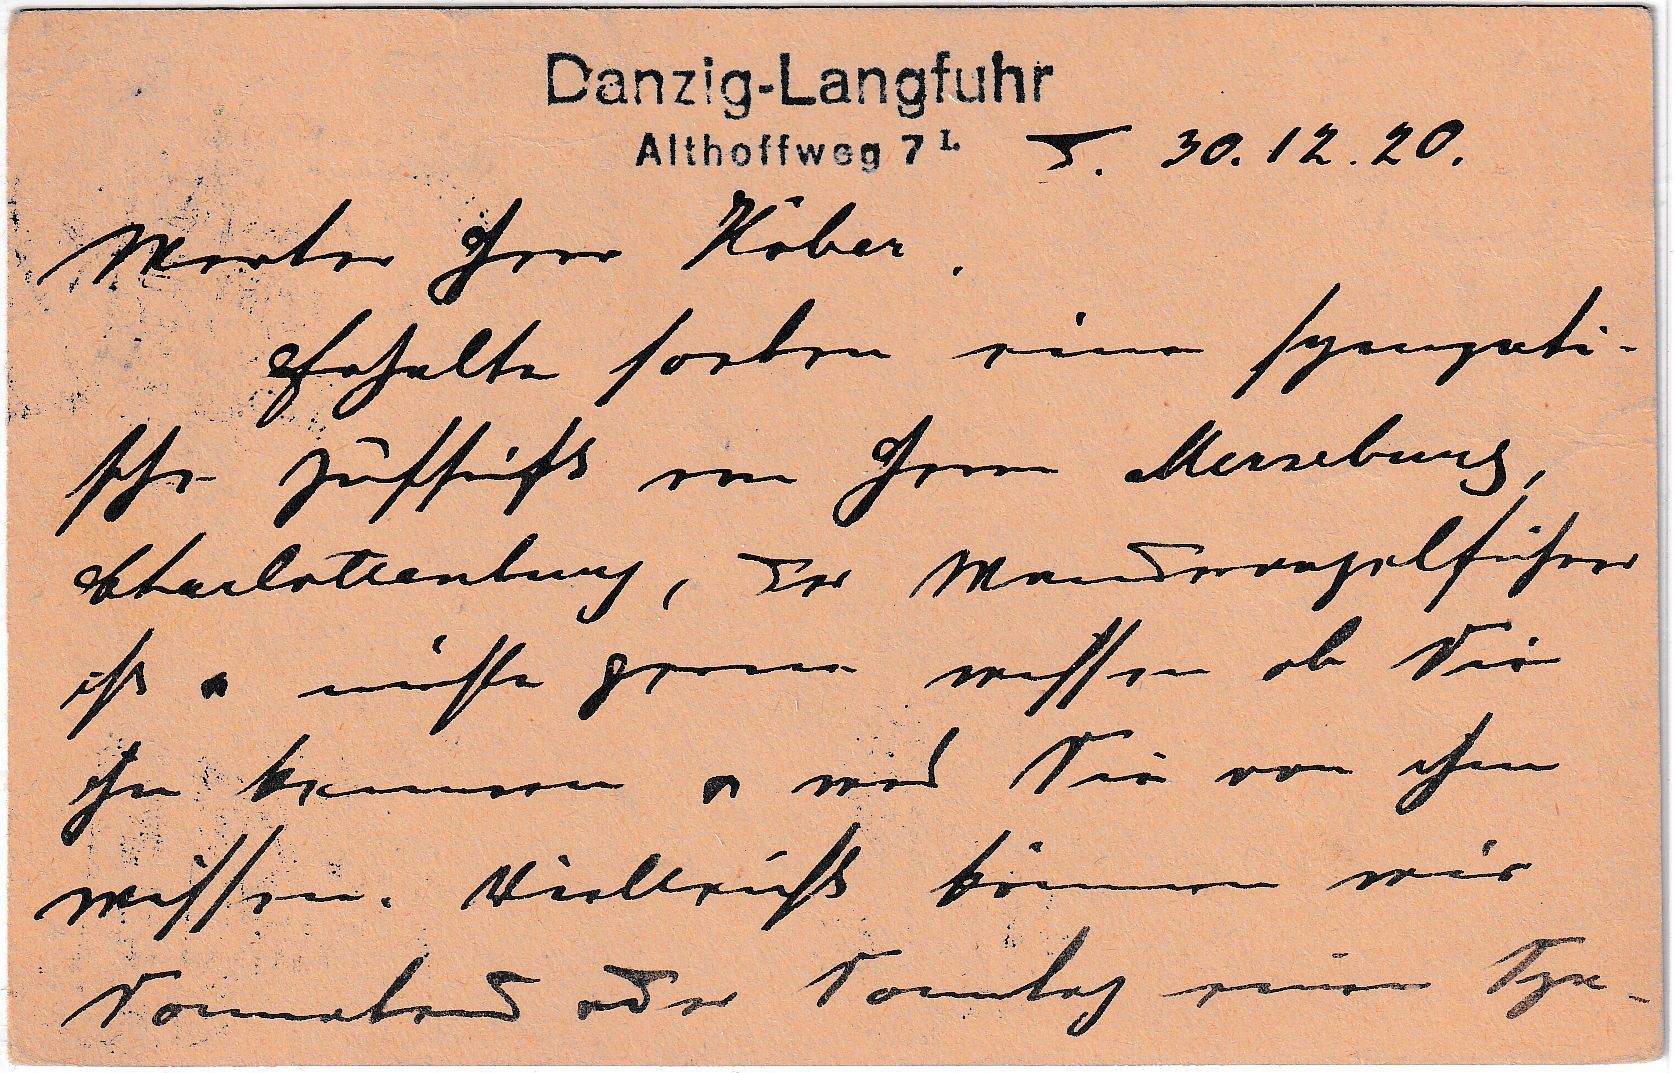 Danzig-Langfuhr
Althoffweg 7 I.
d. 30.12.20.
Werter Herr Köber.
Erhalte soeben eine sympati-
sche Zuschrift von Herrn Merseburg,
Charlottenburg, der Wandervogelführer
ist u möchte gerne wissen ob Sie
ihn kennen u was Sie von ihm
wissen. Vielleicht können wir
Sonnabend oder Sonntag einen Spa-